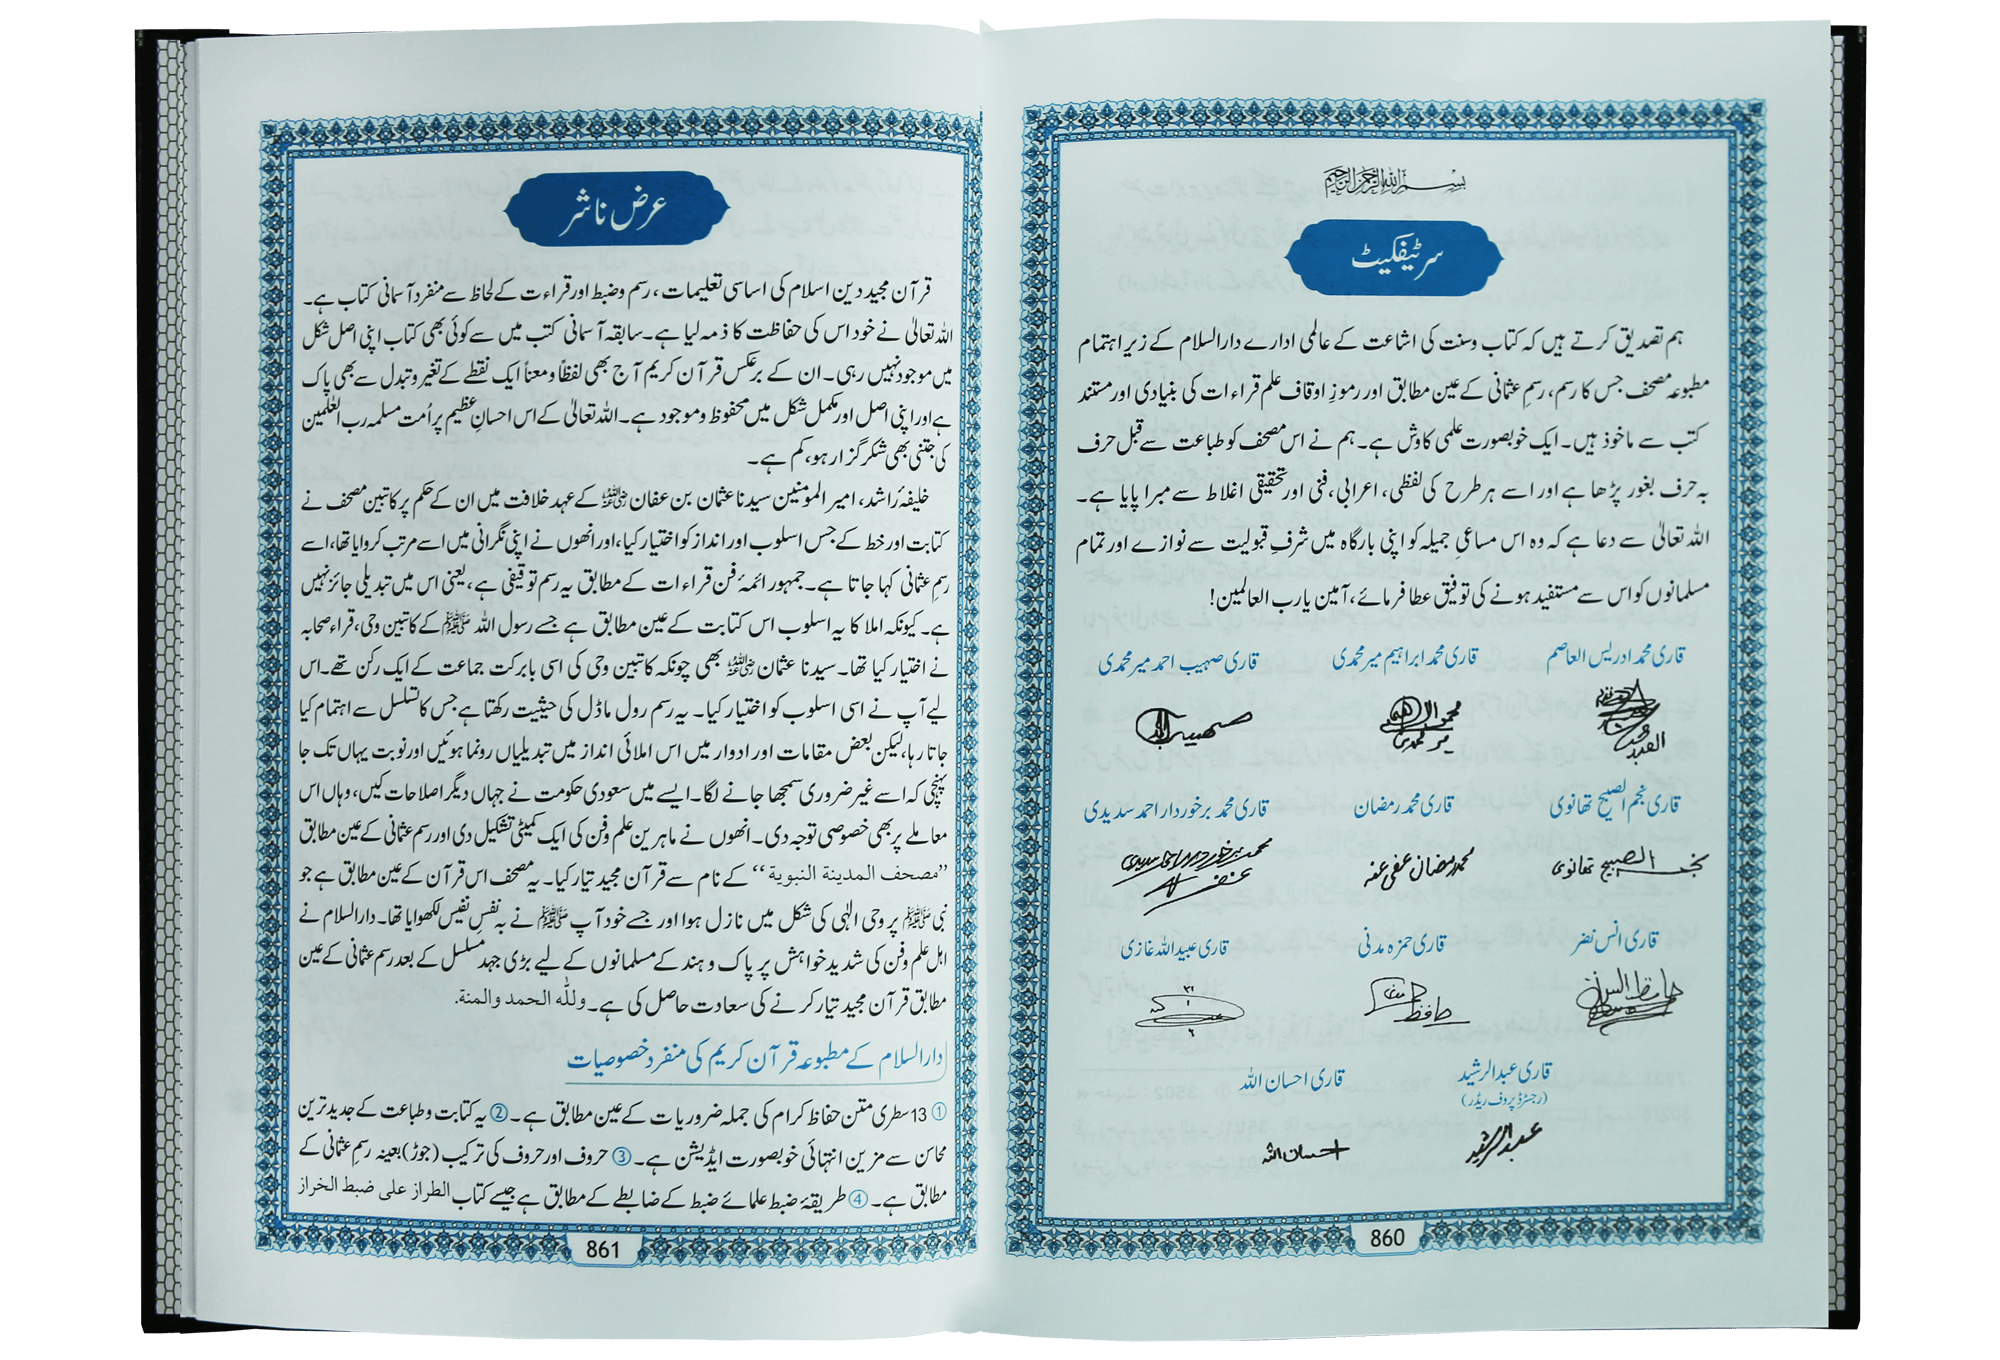 بسم اللہ الرحمن الرحیم
سرٹیفکیٹ
ہم تصدیق کرتے ہیں کہ کتاب وسنت کی اشاعت کے عالمی ادارے دارالسلام کے زیر اہتمام
مطبوعہ مصحف جس کا رسم، رسمِ عثمانی کے عین مطابق اور رموزِ اوقاف علم قراءات کی بنیادی اور مستند
کتب سے ماخوذ ہیں۔ ایک خوبصورت علمی کاوش ہے۔ ہم نے اس مصحف کو طباعت سے قبل حرف
بہ حرف بغور پڑھا ہے اور اسے ہر طرح کی لفظی، اعرابی، فنی اور تحقیقی اغلاط سے مبرا پایا ہے۔
اللہ تعالیٰ سے دعا ہے کہ وہ اس مساعیِ جمیلہ کو اپنی بارگاہ میں شرفِ قبولیت سے نوازے اور تمام
مسلمانوں کو اس سے مستفید ہونے کی توفیق عطا فرمائے، آمین یا رب العالمین!
قاری محمد ادریس العاصم قاری محمد ابراہیم میر محمدی قاری صہیب احمد میر محمدی
قاری نجم الصبیح تھانوی قاری محمد رمضان قاری محمد برخوردار احمد سدیدی
نجم الصبیح تھانوی محمد رمضان عفی عنہ
قاری انس نضر قاری حمزہ مدنی قاری عبیداللہ غازی
قاری عبدالرشید قاری احسان اللہ
(رجسٹرڈ پروف ریڈر)
عبدالرشید احسان اللہ
860
عرض ناشر
قرآن مجید دین اسلام کی اساسی تعلیمات، رسم وضبط اور قراءت کے لحاظ سے منفرد آسمانی کتاب ہے۔
اللہ تعالیٰ نے خود اس کی حفاظت کا ذمہ لیا ہے۔ سابقہ آسمانی کتب میں سے کوئی بھی کتاب اپنی اصل شکل
میں موجود نہیں رہی۔ ان کے برعکس قرآن کریم آج بھی لفظاً ومعناً ایک نقطے کے تغیر و تبدل سے بھی پاک
ہے اور اپنی اصل اور مکمل شکل میں محفوظ و موجود ہے۔ اللہ تعالیٰ کے اس احسانِ عظیم پر اُمت مسلمہ رب العٰلمین
کی جتنی بھی شکر گزار ہو، کم ہے۔
خلیفۂ راشد، امیر المومنین سیدنا عثمان بن عفان رضی اللہ عنہ کے عہد خلافت میں ان کے حکم پر کاتبین مصحف نے
کتابت اور خط کے جس اسلوب اور انداز کو اختیار کیا، اور انھوں نے اپنی نگرانی میں اسے مرتب کروایا تھا، اسے
رسمِ عثمانی کہا جاتا ہے۔ جمہور ائمۂ فن قراءات کے مطابق یہ رسم توقیفی ہے، یعنی اس میں تبدیلی جائز نہیں
ہے۔ کیونکہ املا کا یہ اسلوب اس کتابت کے عین مطابق ہے جسے رسول اللہ ﷺ کے کاتبین وحی، قراء صحابہ
نے اختیار کیا تھا۔ سیدنا عثمان رضی اللہ عنہ بھی چونکہ کاتبین وحی کی اسی بابرکت جماعت کے ایک رکن تھے۔ اس
لیے آپ نے اسی اسلوب کو اختیار کیا۔ یہ رسم رول ماڈل کی حیثیت رکھتا ہے جس کا تسلسل سے اہتمام کیا
جاتا رہا، لیکن بعض مقامات اور ادوار میں اس املائی انداز میں تبدیلیاں رونما ہوئیں اور نوبت یہاں تک جا
پہنچی کہ اسے غیر ضروری سمجھا جانے لگا۔ ایسے میں سعودی حکومت نے جہاں دیگر اصلاحات کیں، وہاں اس
معاملے پر بھی خصوصی توجہ دی۔ انھوں نے ماہرین علم وفن کی ایک کمیٹی تشکیل دی اور رسم عثمانی کے عین مطابق
”مصحف المدينة النبوية“ کے نام سے قرآن مجید تیار کیا۔ یہ مصحف اس قرآن کے عین مطابق ہے جو
نبی ﷺ پر وحی الٰہی کی شکل میں نازل ہوا اور جسے خود آپ ﷺ نے بہ نفسِ نفیس لکھوایا تھا۔ دارالسلام نے
اہل علم وفن کی شدید خواہش پر پاک و ہند کے مسلمانوں کے لیے بڑی جہدِ مسلسل کے بعد رسم عثمانی کے عین
مطابق قرآن مجید تیار کرنے کی سعادت حاصل کی ہے۔ وللّٰه الحمد والمنة.
دارالسلام کے مطبوعہ قرآن کریم کی منفرد خصوصیات
① 13 سطری متن حفاظ کرام کی جملہ ضروریات کے عین مطابق ہے۔ ② یہ کتابت وطباعت کے جدید ترین
محاسن سے مزین انتہائی خوبصورت ایڈیشن ہے۔ ③ حروف اور حروف کی ترکیب (جوڑ) بعینہ رسمِ عثمانی کے
مطابق ہے۔ ④ طریقۂ ضبط علمائے ضبط کے ضابطے کے مطابق ہے جیسے کتاب الطراز على ضبط الخراز
861